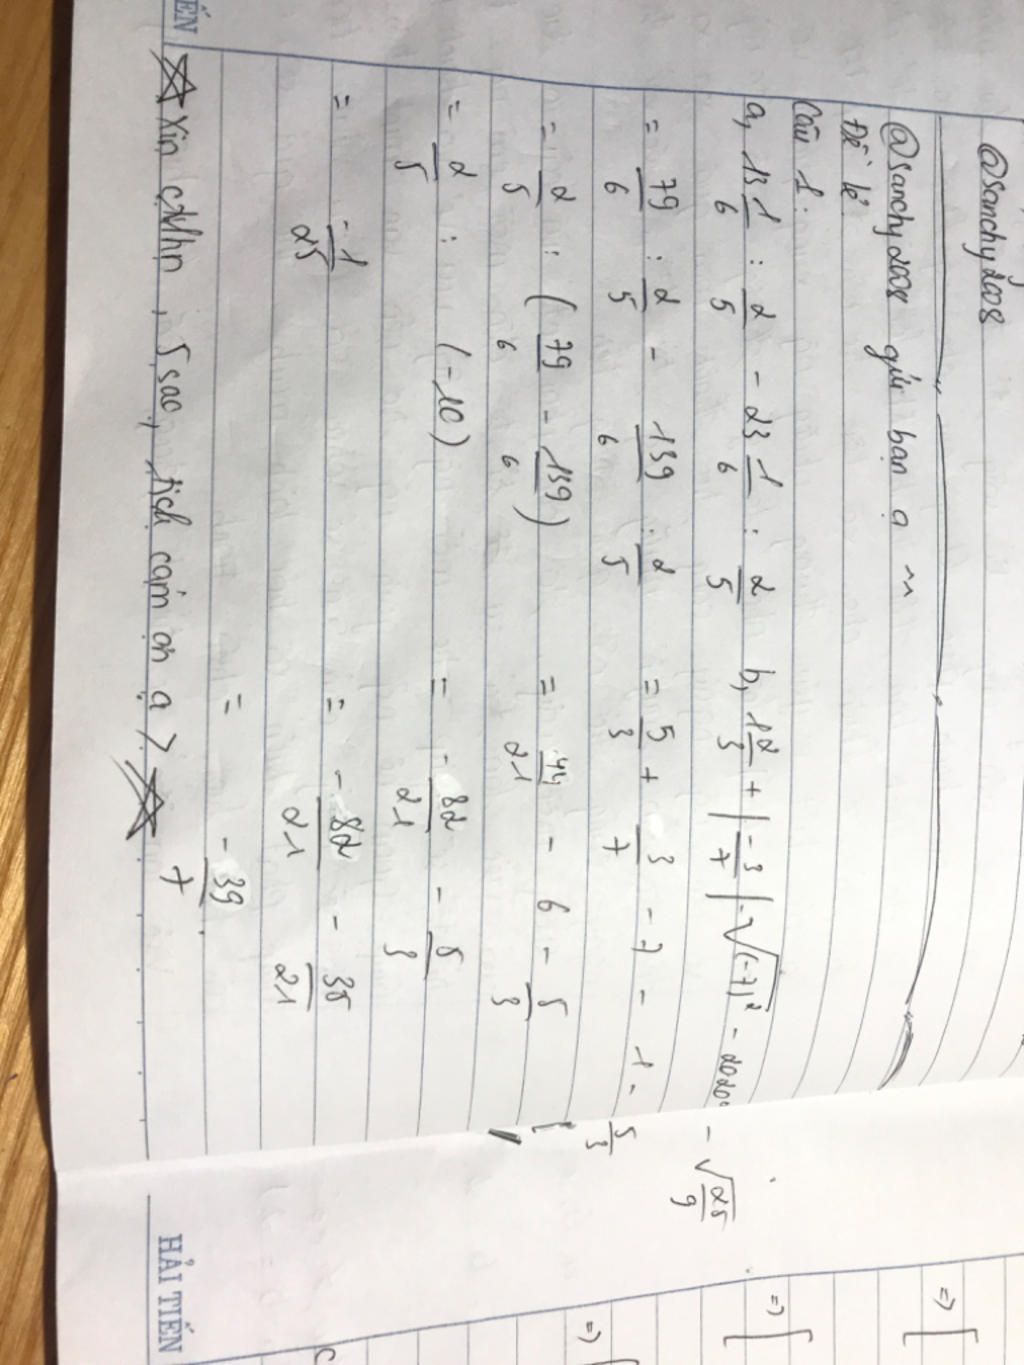 @sanchy2008
@sanchy2008 gửi bạn ạ ~
Đề lẻ
Câu 1:
a, 13 1/6 : 2/5 - 23 1/6 : 2/5
= 79/6 : 2/5 - 139/6 : 2/5
= 2/5 : (79/6 - 139/6)
= 2/5 : (-10)
= -1/25
b, 1 2/3 + |-3/7| - √(-7)² - 2020⁰ - √25/9
= 5/3 + 3/7 - 7 - 1 - 5/3
= 44/21 - 6 - 5/3
= -82/21 - 5/3
= -82/21 - 35/21
= -39/7
☆ Xin ctlhn, 5 sao, tick cảm ơn ạ > ☆
ẾN
HẢI TIẾN
=> [
=> [
=> [